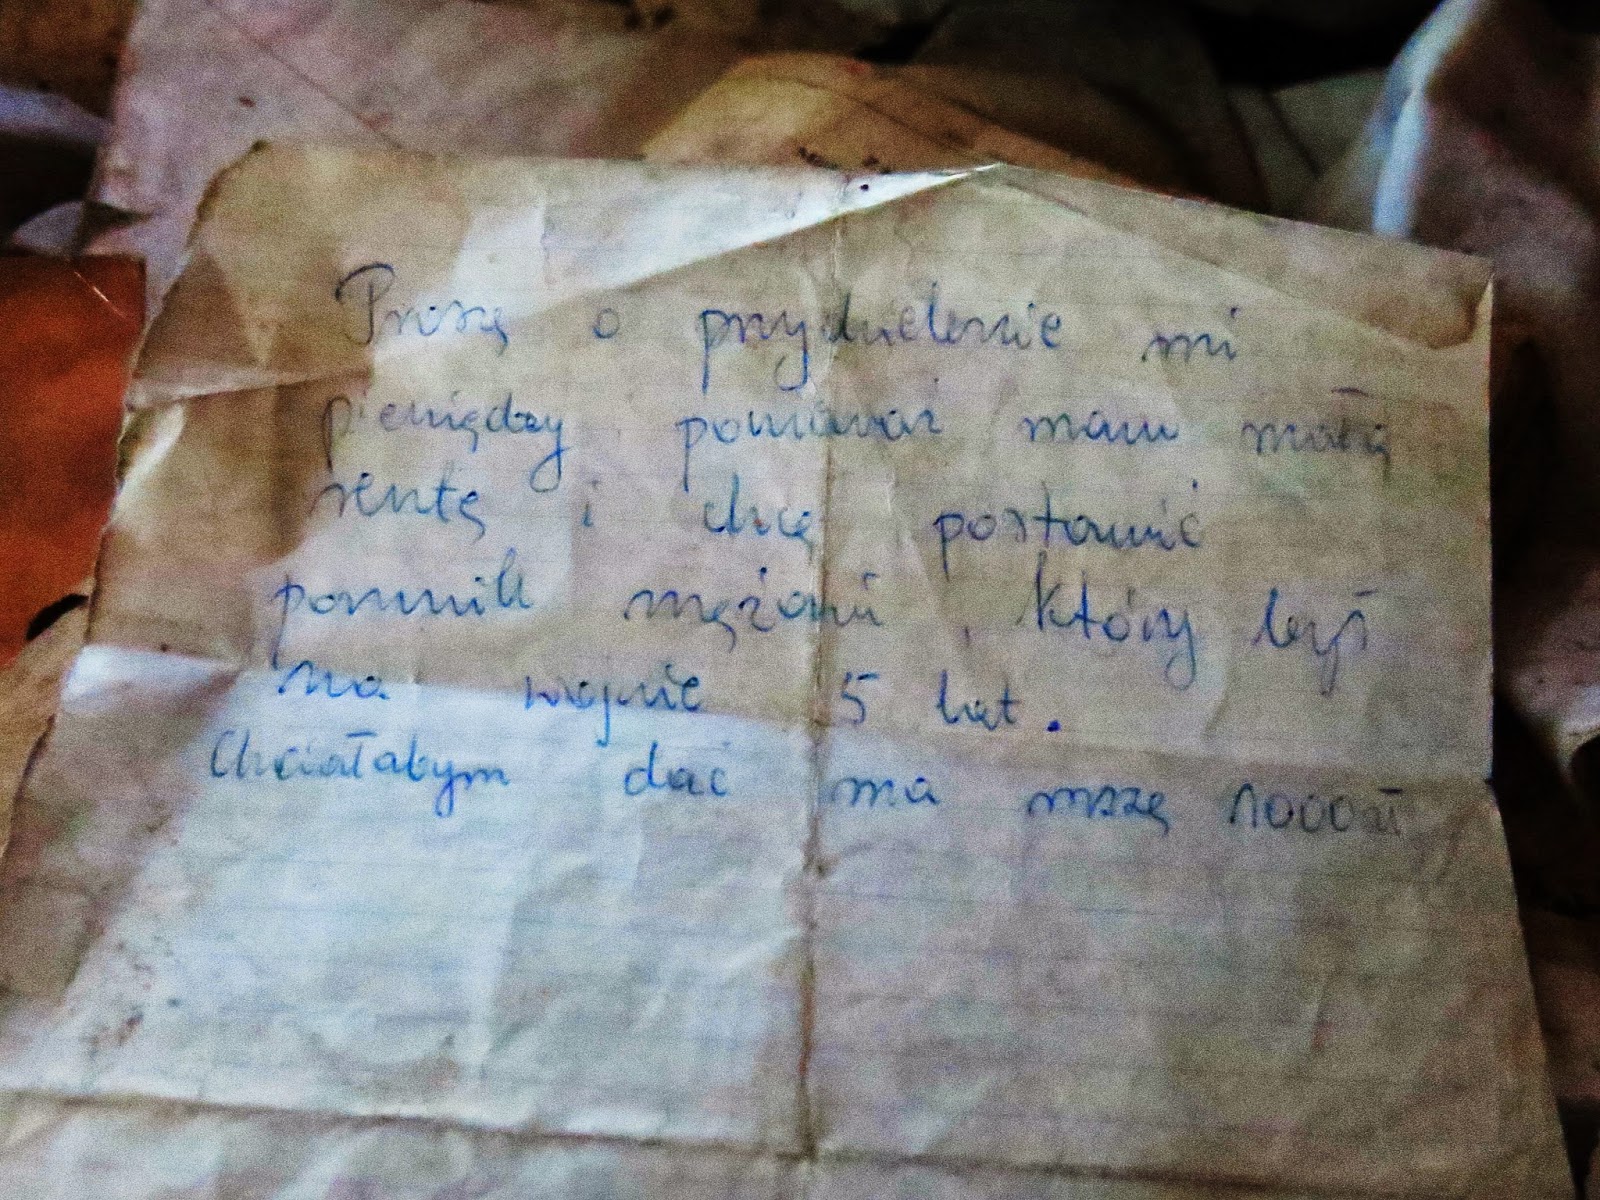 Proszę o przydzielenie mi
pieniędzy ponieważ mam małą
rentę i chcę postawić
pomnik mężowi, który był
na wojnie 5 lat.
Chciałabym dać na mszę 1000zł